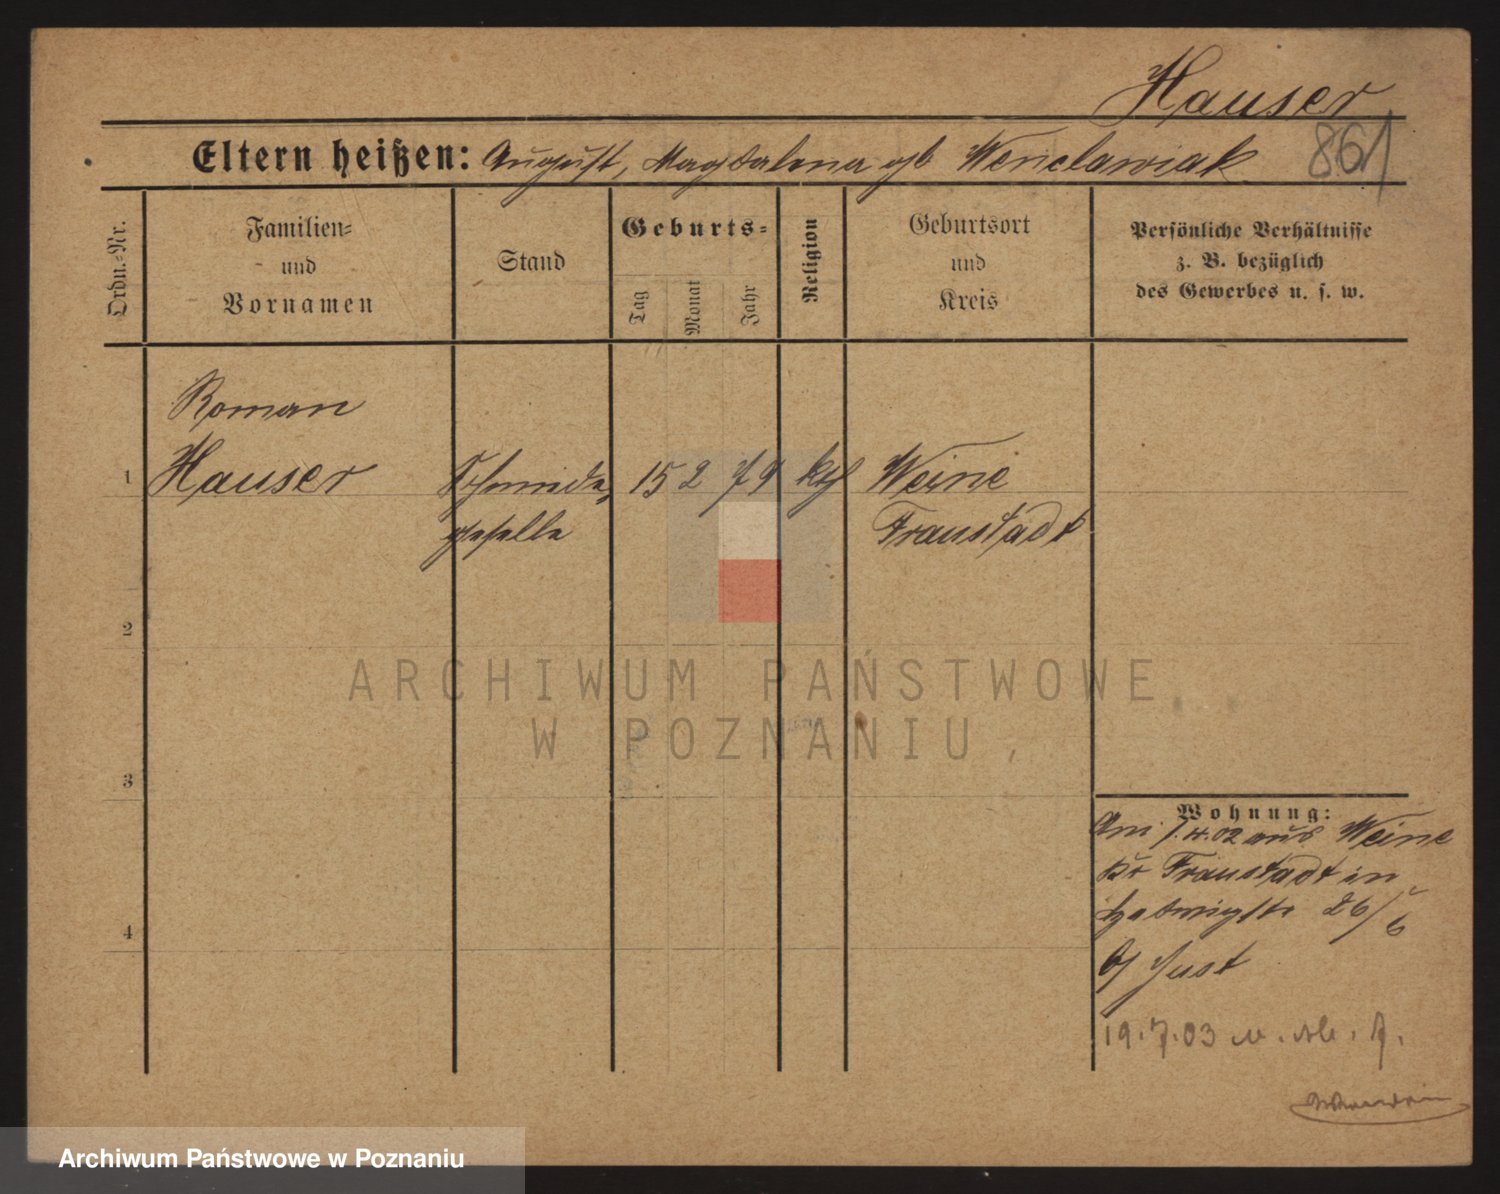 Hauser
861
Eltern heißen: August, Magdalena gb Wenclawiak
Ordn.-Nr.
Familien-
und
Vornamen
Stand
Geburts-
Tag
Monat
Jahr
Religion
Geburtsort
und
Kreis
Persönliche Verhältnisse
z. B. bezüglich
des Gewerbes u. s. w.
Roman
1 Hauser Schmiede- 15 2 79 kth Weine
geselle Fraustadt
2
3
4
ARCHIWUM PAŃSTWOWE
W POZNANIU
Wohnung:
Am 7.4.02 aus Weine
Kr Fraustadt in
Hedwigstr 26/6
b/ Just
19.7.03
Archiwum Państwowe w Poznaniu